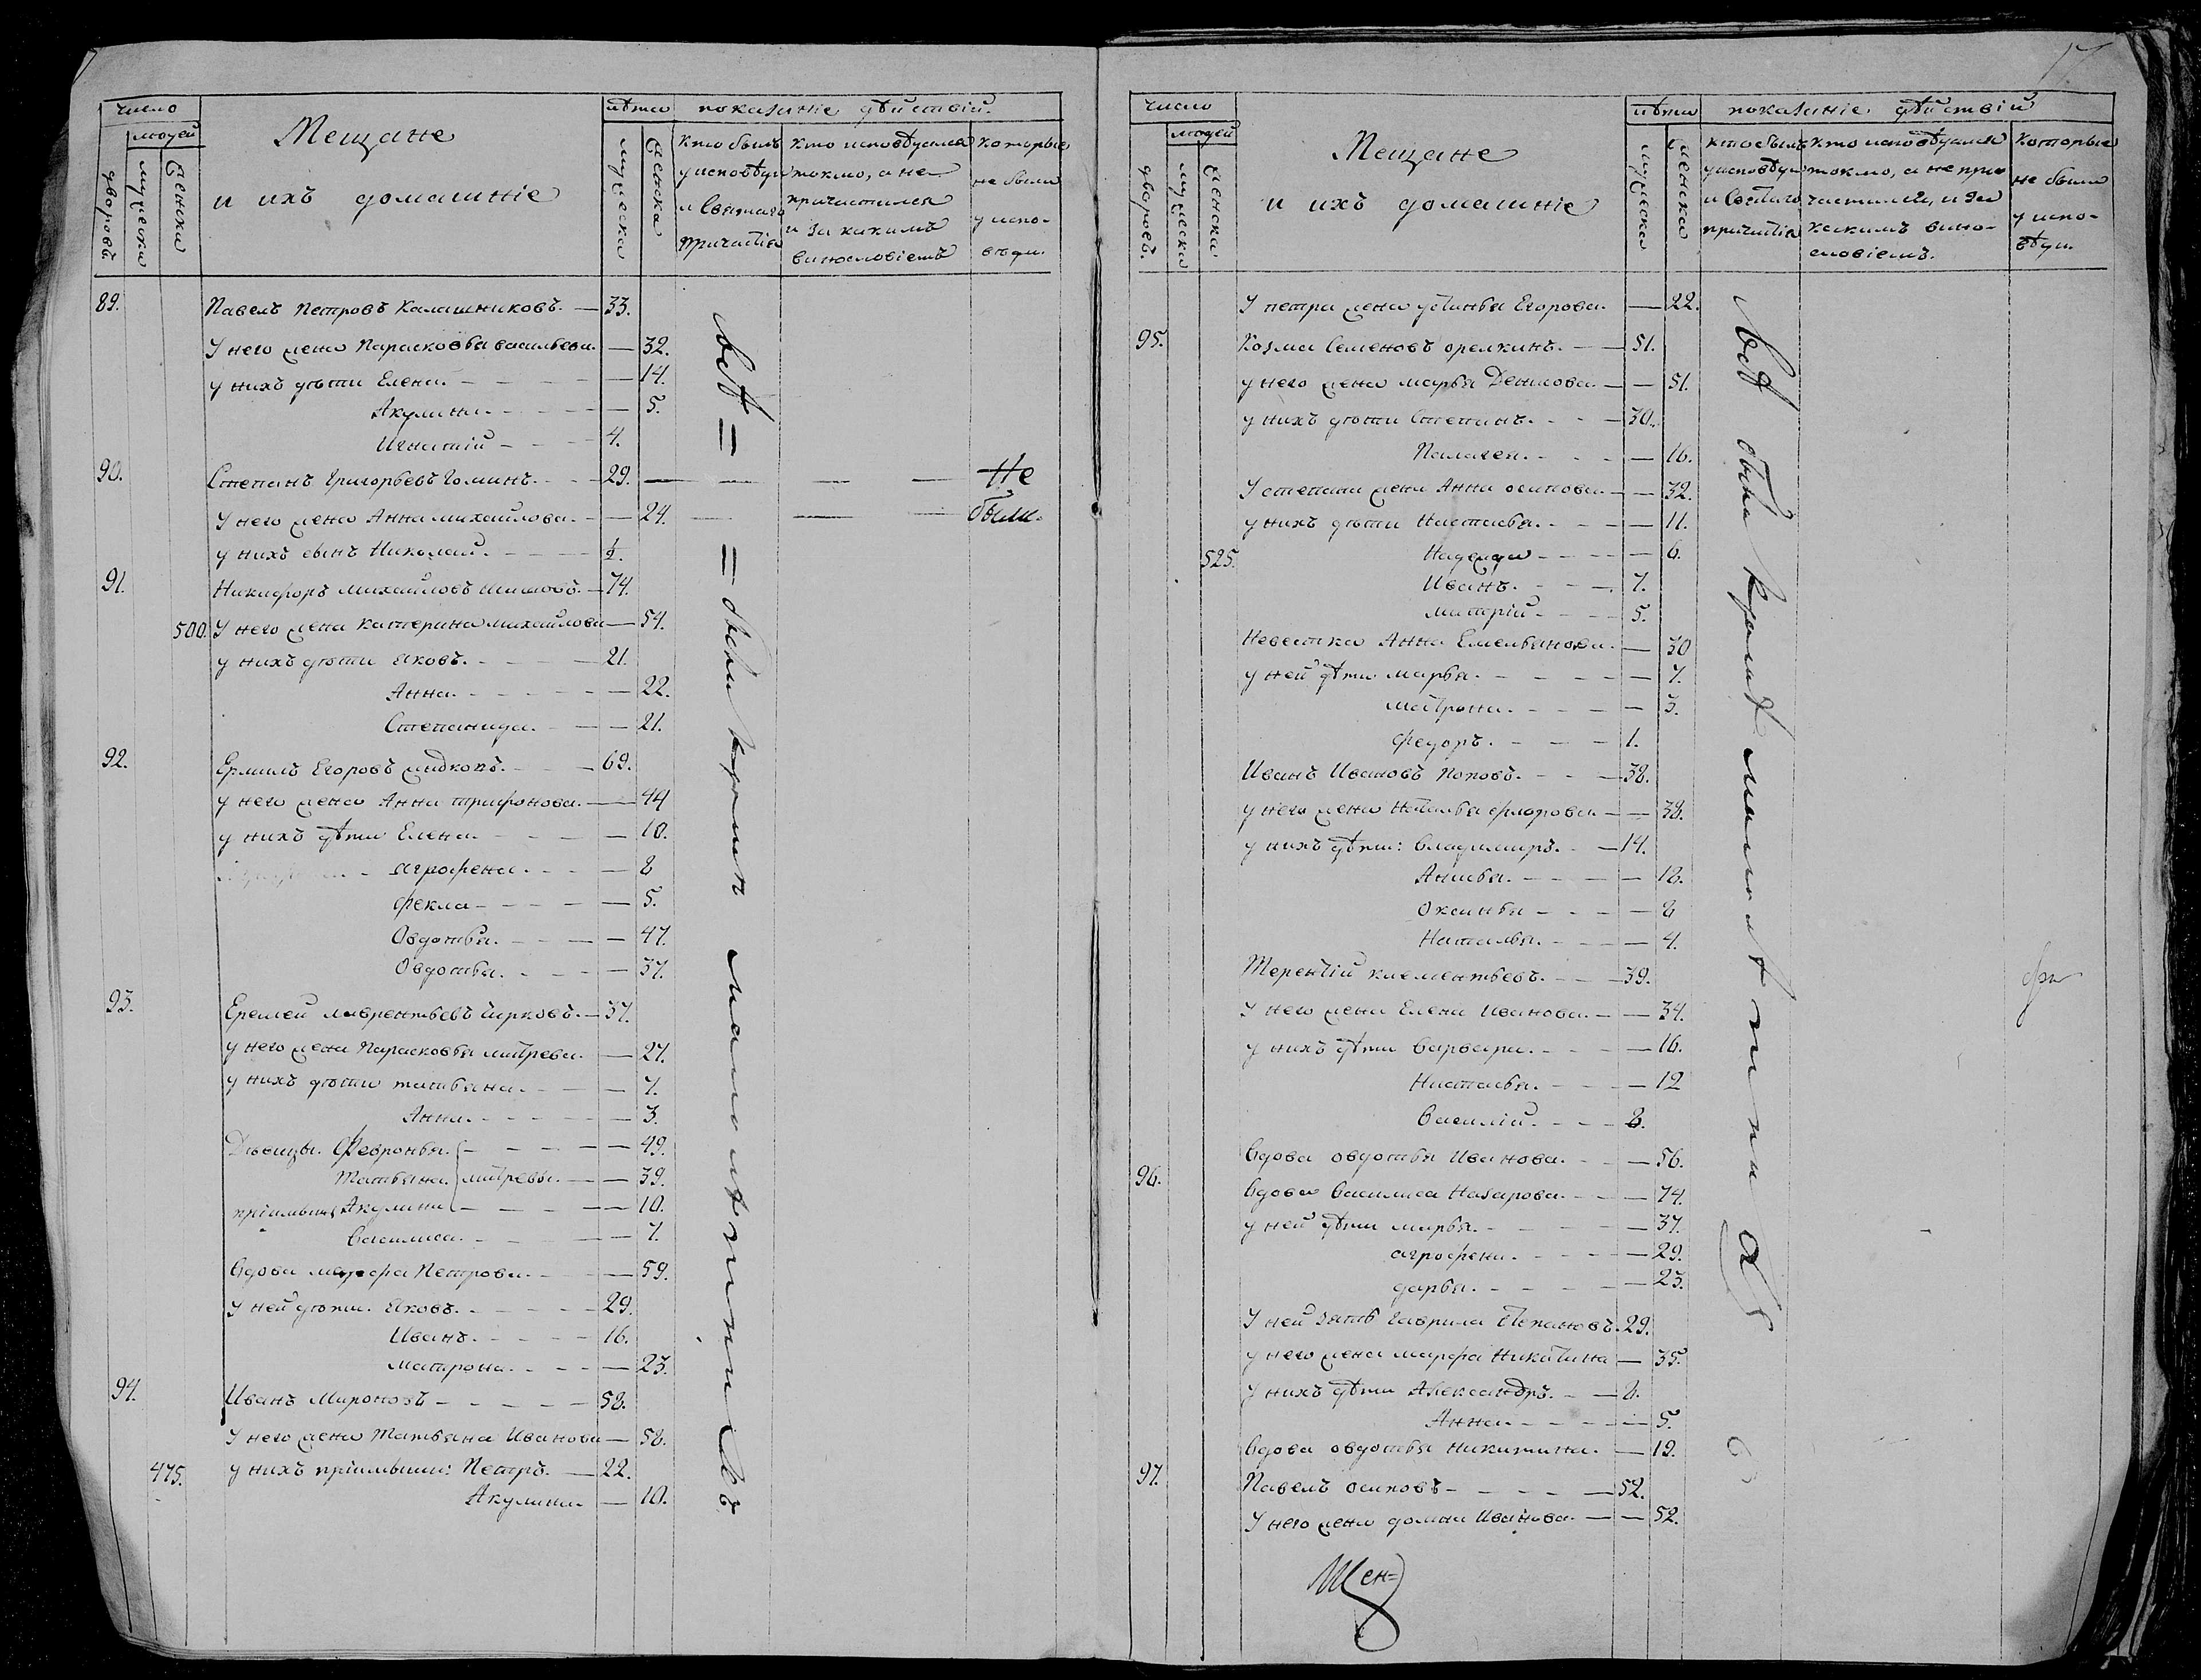 число
людей
дворовъ
мужеска
женска
Мещане
и ихъ домашніе
лѣта
мужеска
женска
показаніе дѣйствій.
кто былъ
у исповѣди
и Святаго
причастія
кто исповѣдался
токмо, а не
причастился
и за какимъ
винословіемъ
которые
не были
у испо-
вѣди.
89. Павелъ Петровъ Калашниковъ. — 33.
У него жена Парасковья васильева. — 32.
у нихъ дѣти Елена. — 14.
Акулина. — 5.
Игнатій — 4.
90. Степанъ Григорьевъ Гоминъ. — 29. — Не
У него жена Анна михайлова. — 24. — были.
у нихъ сынъ Николай. — ½.
91. Никифоръ михайловъ — 74.
500. У него жена катерина михайлова — 54.
у нихъ дѣти яковъ. — 21.
Анна. — 22.
Степанида. — 21.
92. Ермилъ Егоровъ жидковъ. — 69.
у него жена Анна трифонова. — 44
у нихъ дѣти Елена. — 10.
аграфена. — 8
фекла — 5.
Овдотья. — 47.
Овдотья. — 37.
93. Еремей лаврентьевъ Чирковъ. — 37.
у него жена Парасковья митрева. — 27.
у нихъ дѣти татьяна. — 7.
Анна. — 3.
Дѣвицы. Февронья. — 49.
Татьяна. митревы. — 39.
пріимыши Акулина — 10.
Василиса. — 7.
Вдова марфа Петрова. — 59.
У ней дѣти. Яковъ. — 29.
Иванъ. — 16.
матрона. — 23.
94. Иванъ Мироновъ — 58.
У него жена Татьяна Иванова — 58.
475. у нихъ пріимыши: Петръ. — 22.
Акулина — 10.
всѣ = = были кромѣ малолѣтнихъ
17
число
людей
дворовъ.
мужеска
женска.
Мещане
и ихъ домашніе
лѣта
мужеска
женска
показаніе дѣйствій
кто былъ
у исповѣди
и Святаго
причастія
кто исповѣдался
токмо, а не при
частился, и за
какимъ вино-
словіемъ.
которые
не были
у испо-
вѣди.
У петра жена устинья Егорова. — 22.
95. Козма Семеновъ орелкинъ. — 51.
у него жена марья Денисова. — 51.
у нихъ дѣти Степанъ. — 30.
Палагея. — 16.
У степана жена Анна осипова. — 32.
у нихъ дѣти Настасья. — 11.
525. Надежда — 6.
Иванъ. — 7.
митрій — 5.
Невестка Анна Емельянова. — 30
у ней дѣти марья. — 7.
матрона. — 3.
федоръ. — 1.
Иванъ Ивановъ Поповъ. — 38.
у него жена Наталья флорова. — 38.
у нихъ дѣти: владимиръ. — 14.
Анисья. — 18.
Оксинья — 8
Наталья. — 4.
Терентій клементьевъ. — 39.
У него жена Елена Иванова. — 34.
у нихъ дѣти варвара. — 16.
Настасья. — 12
василій. — 8.
Вдова овдотья Иванова. — 56.
96. Вдова василиса Назарова. — 74.
у ней дѣти марья. — 37.
аграфена. — 29.
дарья. — 23.
У ней зять гаврила степановъ. 29.
у него жена марфа Никитина — 35.
У нихъ дѣти Александръ. — 8.
Анна — 5.
Вдова овдотья никитина. — 19.
97. Павелъ осиповъ — 52.
У него жена домна Иванова. — 52.
всѣ были кромѣ малолѣтних
Щен=